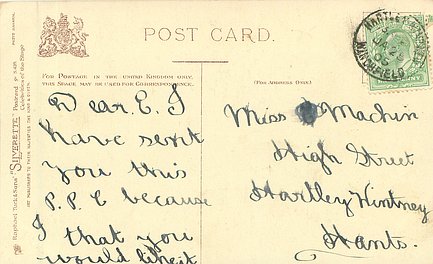 POST CARD.
FOR POSTAGE IN THE UNITED KINGDOM ONLY,
THIS SPACE MAY BE USED FOR CORRESPONDENCE.
(FOR ADDRESS ONLY.)
Dear E. I
have sent
you this
P. P. C because
I that you
would like it
Miss Machin
High Street
Hartley Wintney
Hants.
Raphael Tuck & Sons' "SILVERETTE" Postcard
Celebrities of the Stage